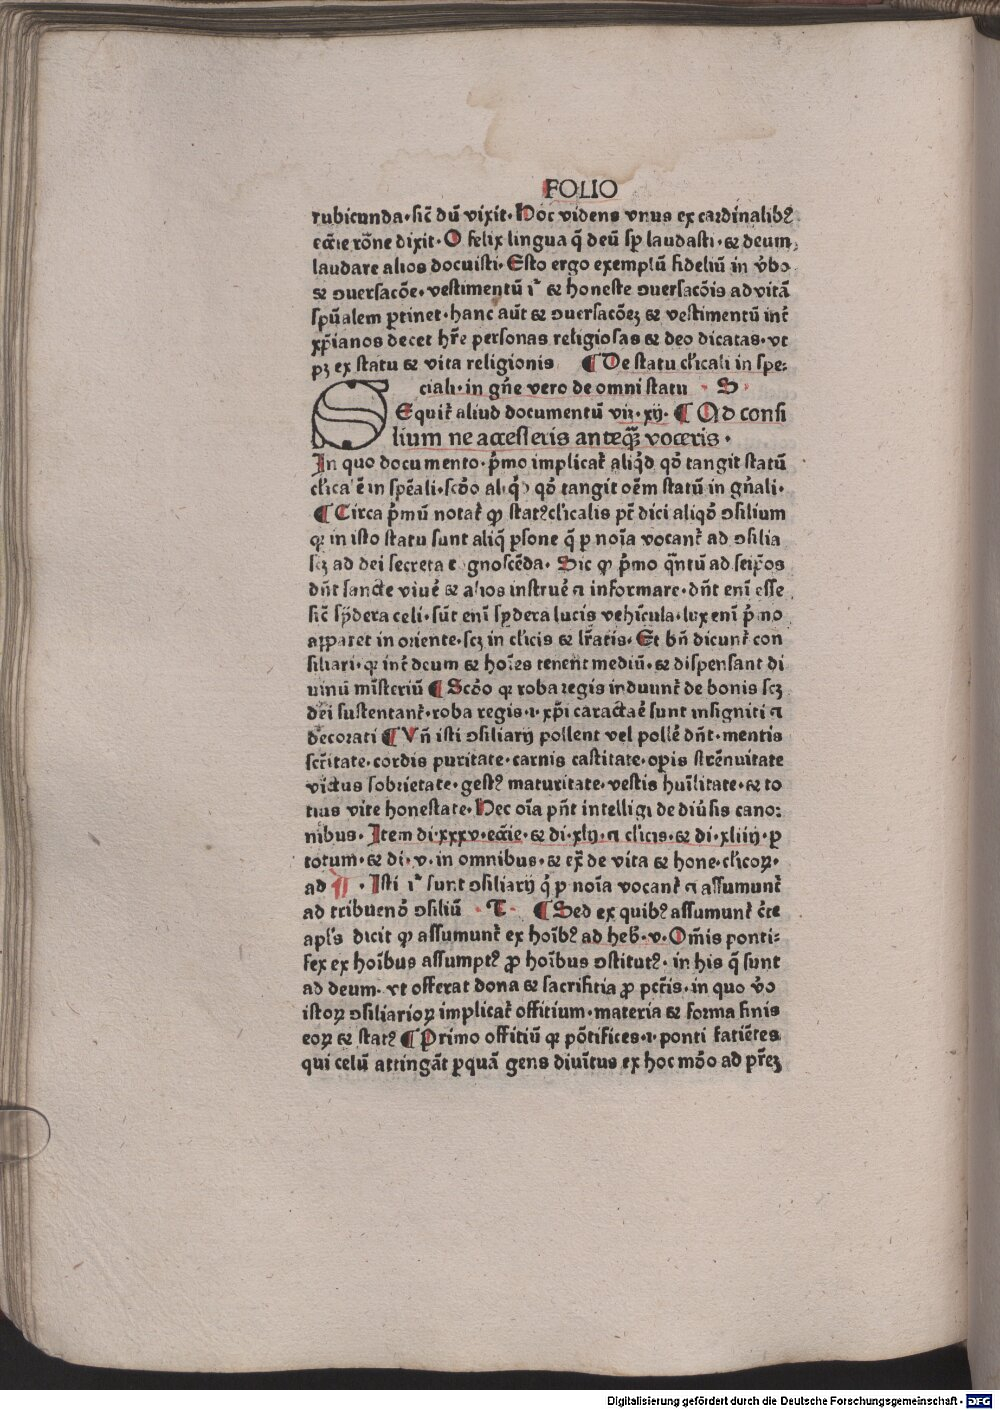 FOLIO
rubicunda·sic̄ dū vixit·Hoc videns vnus ex cardinalibꝫ
ecc̄ie rōne dixit·O felix lingua q̄ deū sp̄ laudasti·⁊ deum
laudare alios docuisti·Esto ergo exemplū fideliū in v̓bo
⁊ ꝯuersacōe·vestimentū iͬ ⁊ honeste ꝯuersacōis ad vitā
sp̄ualem ꝑtinet·hanc aūt ⁊ ꝯuersacōeꝫ ⁊ vestimentū int̓
xp̄ianos decet hr̄e personas religiosas ⁊ deo dicatas·vt
pꝫ ex statu ⁊ vita religionis ¶ De statu cl̓icali in spe⸗
ciali·in gn̄e vero de omni statu · S ·
SEquit̓ aliud documentū vij·xij·¶ Ad consi
lium ne accesseris anteqꝫ̄ voceris·
In quo documento·p̓mo implicat̓ aliq̓d qđ tangit statū
cl̓icalē in spēali·scđo aliq̓d qđ tangit oēm statū in gn̄ali·
¶ Circa p̓mū notat̓ ꝙ statꝰ cl̓icalis pt̄ dici aliqđ ꝯsilium
qꝛ in isto statu sunt aliq̄ ꝑsone q̄ ꝑ noīa vocant̓ ad ꝯsilia
scꝫ ad dei secreta cognoscēda· Sic ꝙ p̓mo qn̄tū ad seip̄os
dn̄t sancte viue̓ ⁊ alios instrue̓ ⁊ informare·dn̄t enī esse
sic̄ sydera celi·sūt enī sydera lucis vehīcula·lux enī p̓mo
apparet in oriente·scꝫ in cl̓icis ⁊ lr̄atis·Et bn̄ dicunt̓ con
siliari·qꝛ int̓ deum ⁊ hoīes tenent mediū·⁊ dispensant di
uinū mīsteriū ¶ Scđo qꝛ roba regis induunt̓ de bonis scꝫ
dei sustentant̓·roba regis·i·xp̄i caractae̓ sunt insigniti ⁊
decorati ¶ Vn̄ isti ꝯsiliarij pollent vel polle̓ dn̄t·mentis
scr̄itate·cordis puritate·carnis castitate·oꝑis strēnuitate
victus sobrietate·gestꝰ maturitate·vestis huīlitate·⁊ to
tius vite honestate·Hec oīa pn̄t intelligi de diu̓sis cano⸗
nibus·Item di·xxxv·ecc̄ie·⁊ di·xlij·⁊ cl̓icis·⁊ di·xliiij·ꝑ
totum·⁊ di·v·in omnibus·⁊ ex̄ de vita ⁊ hone·cl̓icoꝝ·
ad ¶ · Isti iͬ sunt ꝯsiliarij q̓ ꝑ noīa vocant̓ ⁊ assumunt̓
ad tribuendo ꝯsiliū · T · ¶ Sed ex quibꝫ assumunt̓ c̓te
apl̓s dicit ꝙ assumunt̓ ex hoībꝫ ad heb̓·v·Om̄is ponti⸗
fex ex hoībus assumptꝰ ꝓ hoībus ꝯstitutꝰ·in his q̄ sunt
ad deum·vt offerat dona ⁊ sacrifitia ꝓ pctīs·in quo v̓o
istoꝝ ꝯsiliarioꝝ implicat̓ offitium·materia ⁊ forma finis
eoꝝ ⁊ statꝰ ¶ Primo offitiū qꝛ pōtifices·i·ponti fatiētes
qui celū attingāt ꝑquā gens diuītus ex hoc mōo ad pr̄eꝫ
Digitalisierung gefördert durch die Deutsche Forschungsgemeinschaft - DFG